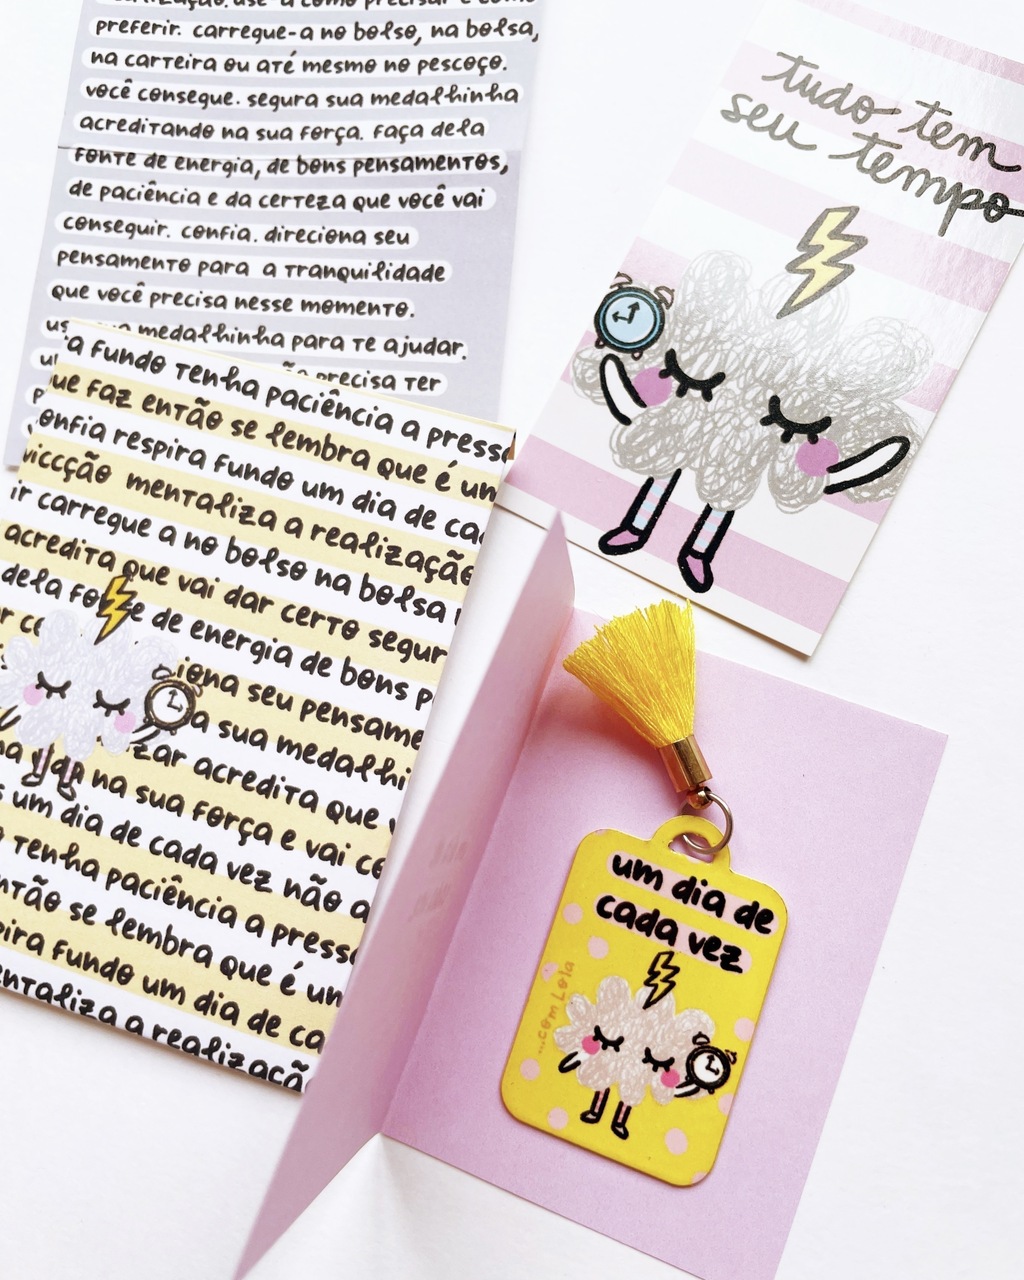 preferir. carregue-a no bolso, na bolsa,
na carteira ou até mesmo no pescoço.
você consegue. segura sua medalhinha
acreditando na sua força. faça dela
fonte de energia, de bons pensamentos,
de paciência e da certeza que você vai
conseguir. confia. direciona seu
pensamento para a tranquilidade
que você precisa nesse momento.
medalhinha para te ajudar.
precisa ter
tudo tem
seu tempo
a fundo tenha paciência a presse
ue faz então se lembra que é um
onfia respira fundo um dia de cad
vicção mentaliza a realização
ir carregue a no bolso na bolsa
acredita que vai dar certo segur
dela fonte de energia de bons p
iona seu pensame
a sua medalhi
zar acredita que
na sua força e vai co
um dia de cada vez não a
tenha paciência a presse
ntão se lembra que é um
pira fundo um dia de ca
entaliza a realizaçã
um dia de
cada vez
...com Lola